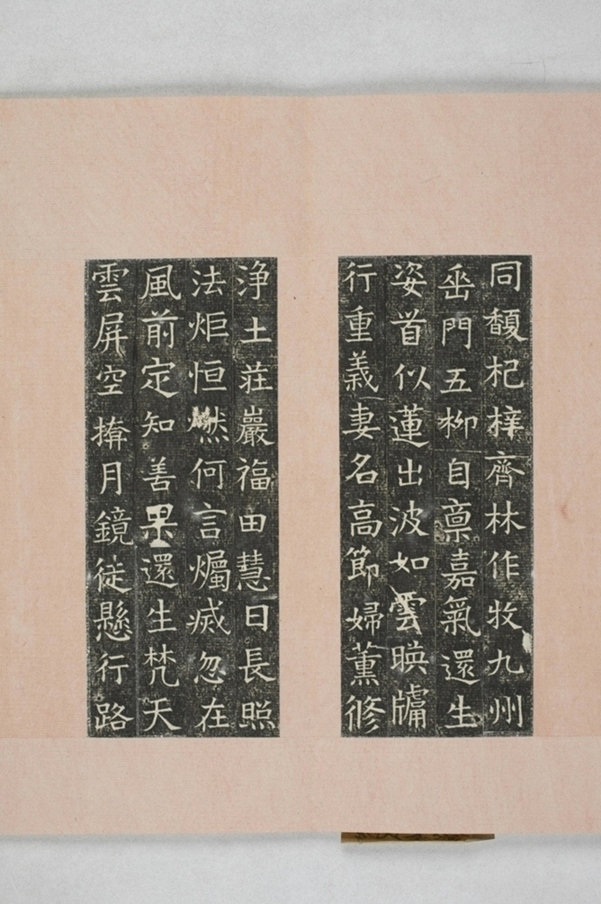 同馥杞梓齊林作牧九州
坙門五柳自稟嘉氣還生
姿首似蓮出波如雲暎牗
行重義妻名高節婦薰修
浄土莊嚴福田慧日長照
法炬恒燃何言燭滅忽在
風前定知善果還生梵天
雲屏空揜月鏡徒懸行路